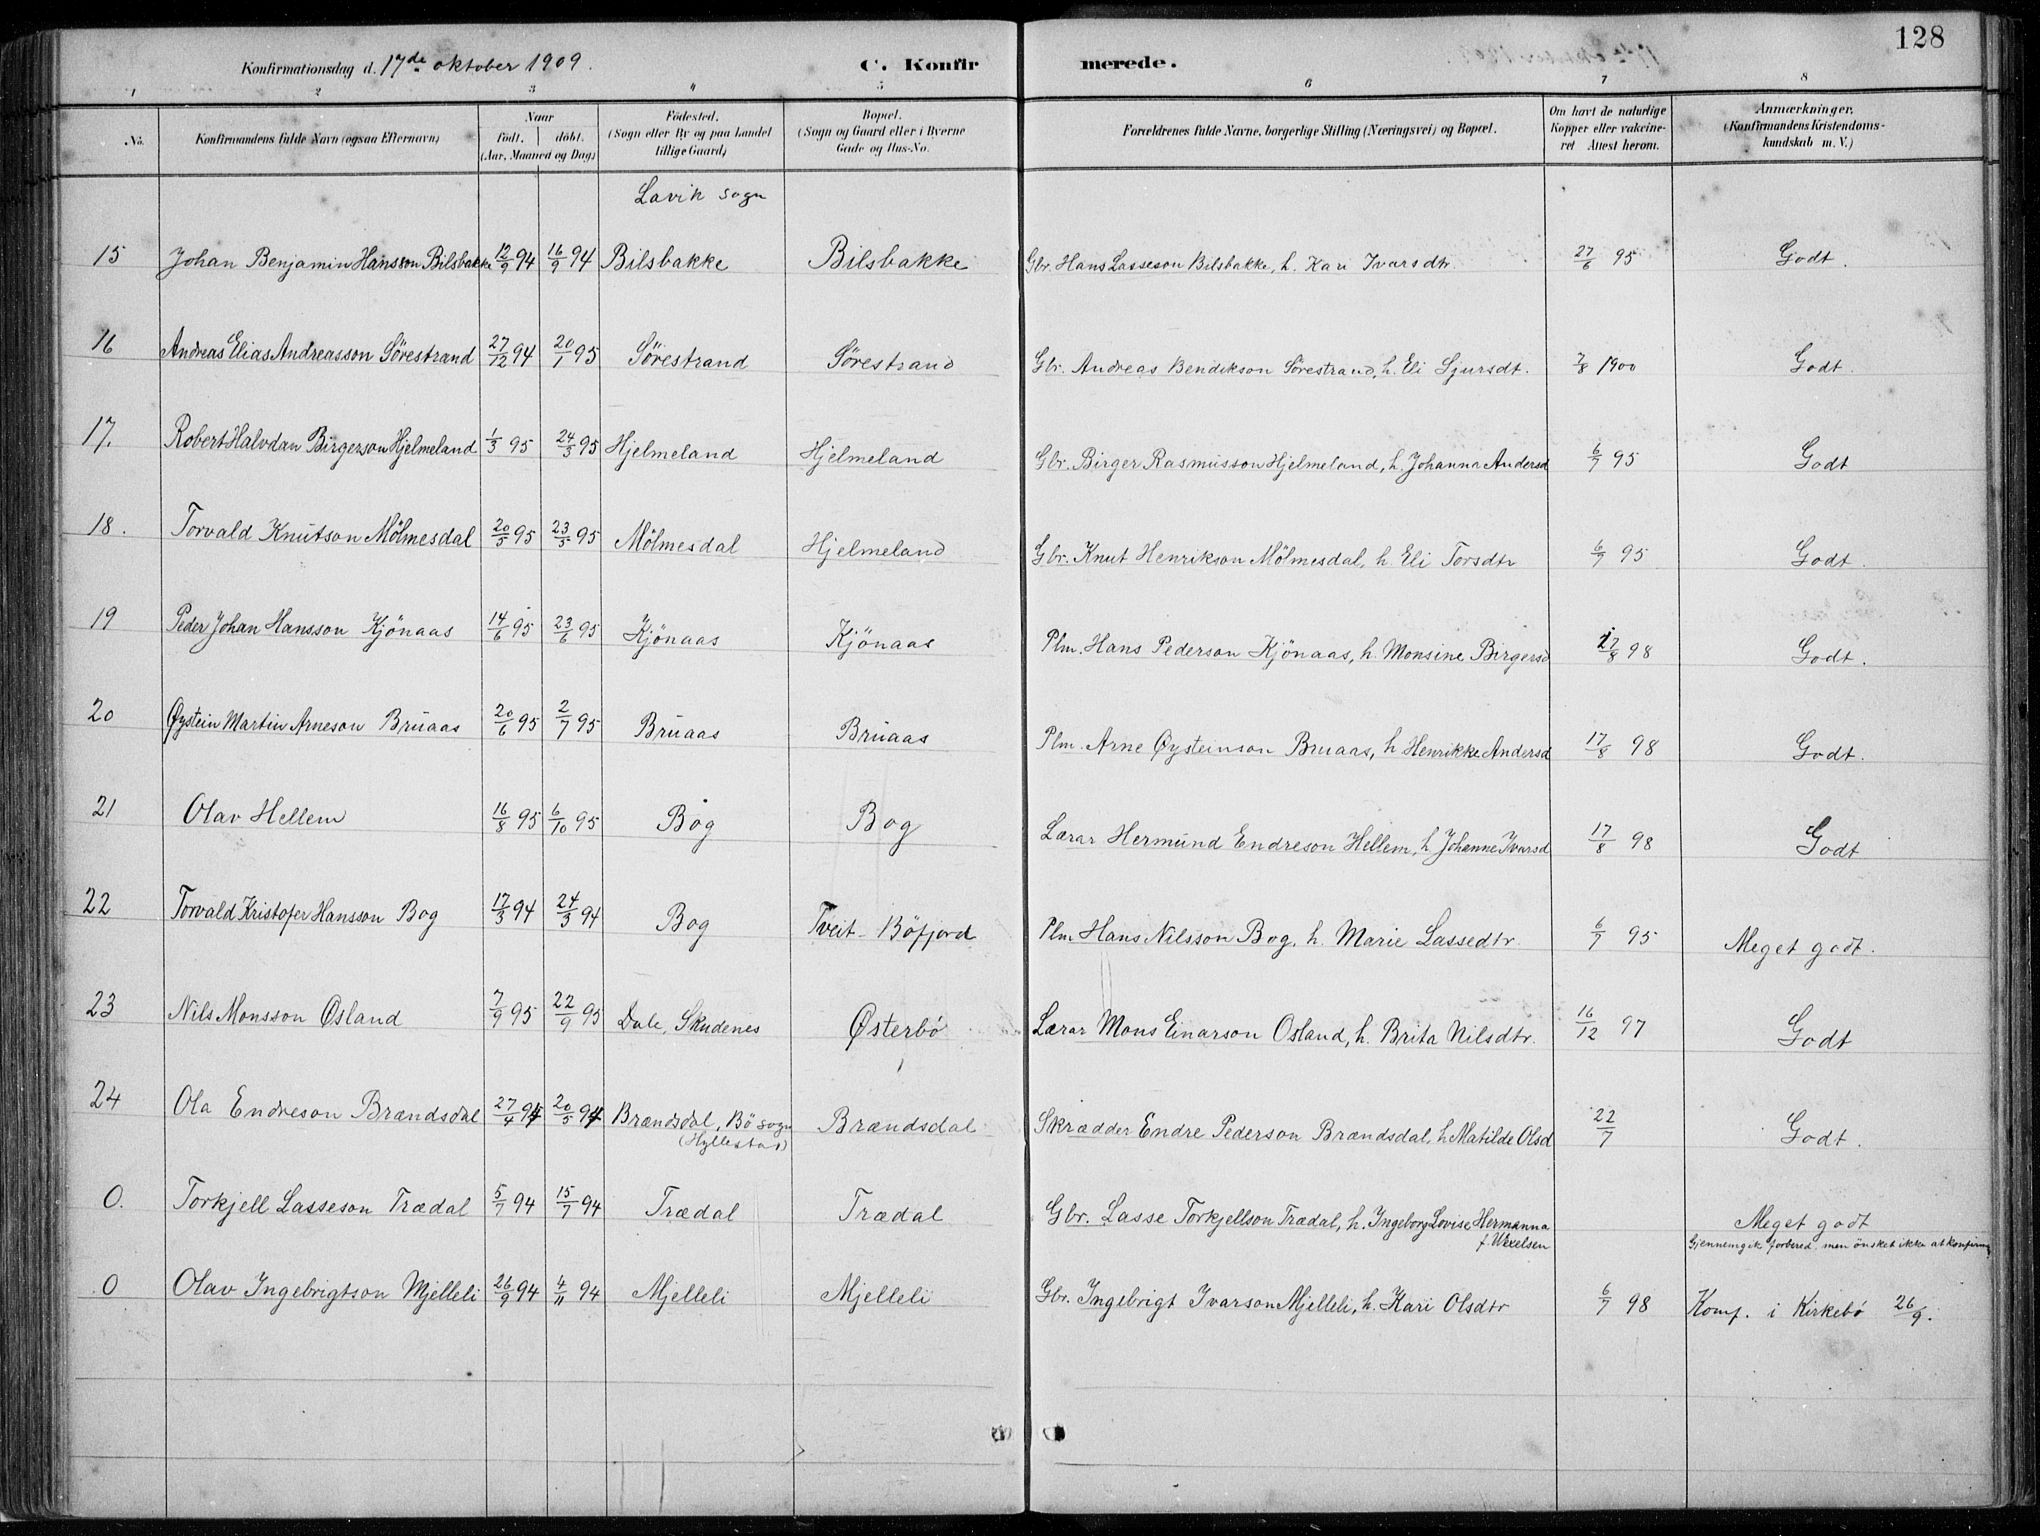 128
Konfirmationsdag d. 17de oktober 1909.
C. Konfirmerede.
1 2 3 4 5 6 7 8
No. Konfirmandens fulde Navn (ogsaa Efternavn) Naar født. døbt. (Aar, Maaned og Dag) Fødested. (Sogn eller By og paa Landet tillige Gaard) Bopæl. (Sogn og Gaard eller i Byerne Gade og Hus-No. Forældrenes fulde Navne, borgerlige Stilling (Næringsvei) og Bopæl. Om havt de naturlige Kopper eller vakcineret Attest herom. Anmærkninger. (Konfirmandens Kristendomskundskab m. V.)
Lavik sogn
15 Johan Benjamin Hansson Bilsbakke 12/9 94 16/9 94 Bilsbakke Bilsbakke Gbr. Hans Lasseson Bilsbakke, h. Kari Ivarsdtr. 27/6 95 Godt.
16 Andreas Elias Andreasson Sørestrand 27/12 94 20/1 95 Sørestrand Sørestrand Gbr. Andreas Bendikson Sørestrand, h. Eli Sjursdt. 7/8 1900 Godt.
17. Robert Halvdan Birgerson Hjelmeland 1/3 95 24/3 95 Hjelmeland Hjelmeland Gbr. Birger Rasmusson Hjelmeland, h. Johanna Andersd 6/7 95 Godt
18. Torvald Knutson Mölmesdal 20/5 95 23/5 95 Mölmesdal Hjelmeland Gbr. Knut Henrikson Mölmesdal, h. Eli Torsdtr 6/7 95 Godt.
19 Peder Johan Hansson Kjönaas 14/6 95 23/6 95 Kjönaas Kjönaas Plm. Hans Pederson Kjönaas, h. Monsine Birgersd 17/8 98 Godt.
20 Øystein Martin Arneson Bruaas 20/6 95 2/7 95 Bruaas Bruaas Plm. Arne Øysteinson Bruaas, h Henrikke Andersd 17/8 98 Godt.
21 Olav Hellem 16/8 95 6/10 95 Bog Bog Lærar Hermund Endreson Hellem, h Johanne Ivarsd 17/8 98 Godt
22 Torvald Kristofer Hansson Bog 17/3 94 24/3 94 Bog Tveit - Böfjord Plm Hans Nilsson Bog, h. Marie Lassedtr. 6/7 95 Meget godt.
23 Nils Monsson Øsland 7/9 95 22/9 95 Dale, Skudenes Østerbø Lærar Mons Einarson Osland, h. Brita Nilsdtr. 16/12 97 Godt
24 Ola Endreson Brændsdal 27/4 94 20/5 94 Brændsdal, Bö sogn (Hyllestad) Brændsdal Skrædder Endre Pederson Brændsdal, h Matilde Olsd 22/7 Godt.
0. Torkjell Lasseson Trædal 5/7 94 15/7 94 Trædal Trædal Gbr. Lasse Torkjellson Trædal, h. Ingeborg Lovise Hermanna f. Wexelsen Meget godt
Gjennemgik forbered. men ønsket ikke at konfirm
0 Olav Ingebrigtson Mjelleli 26/9 94 4/11 94 Mjelleli Mjelleli Gbr. Ingebrigt Ivarson Mjelleli, h. Kari Olsdtr 6/7 98 Komf. i Kirkebø 26/9.